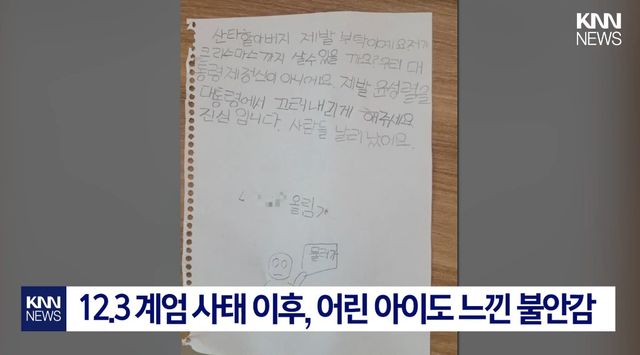 KNN
NEWS
산타할아버지 제발 부탁이에요 저가
크리스마스까지 살수있을 까요? 우리 대
통령 제정신이 아니에요. 제발 윤성렬을
대통령에서 끄러내리게 해주세요
진심 입니다. 사람들 난리났어요.
올림
물러가
KNN
NEWS
12.3 계엄 사태 이후, 어린 아이도 느낀 불안감